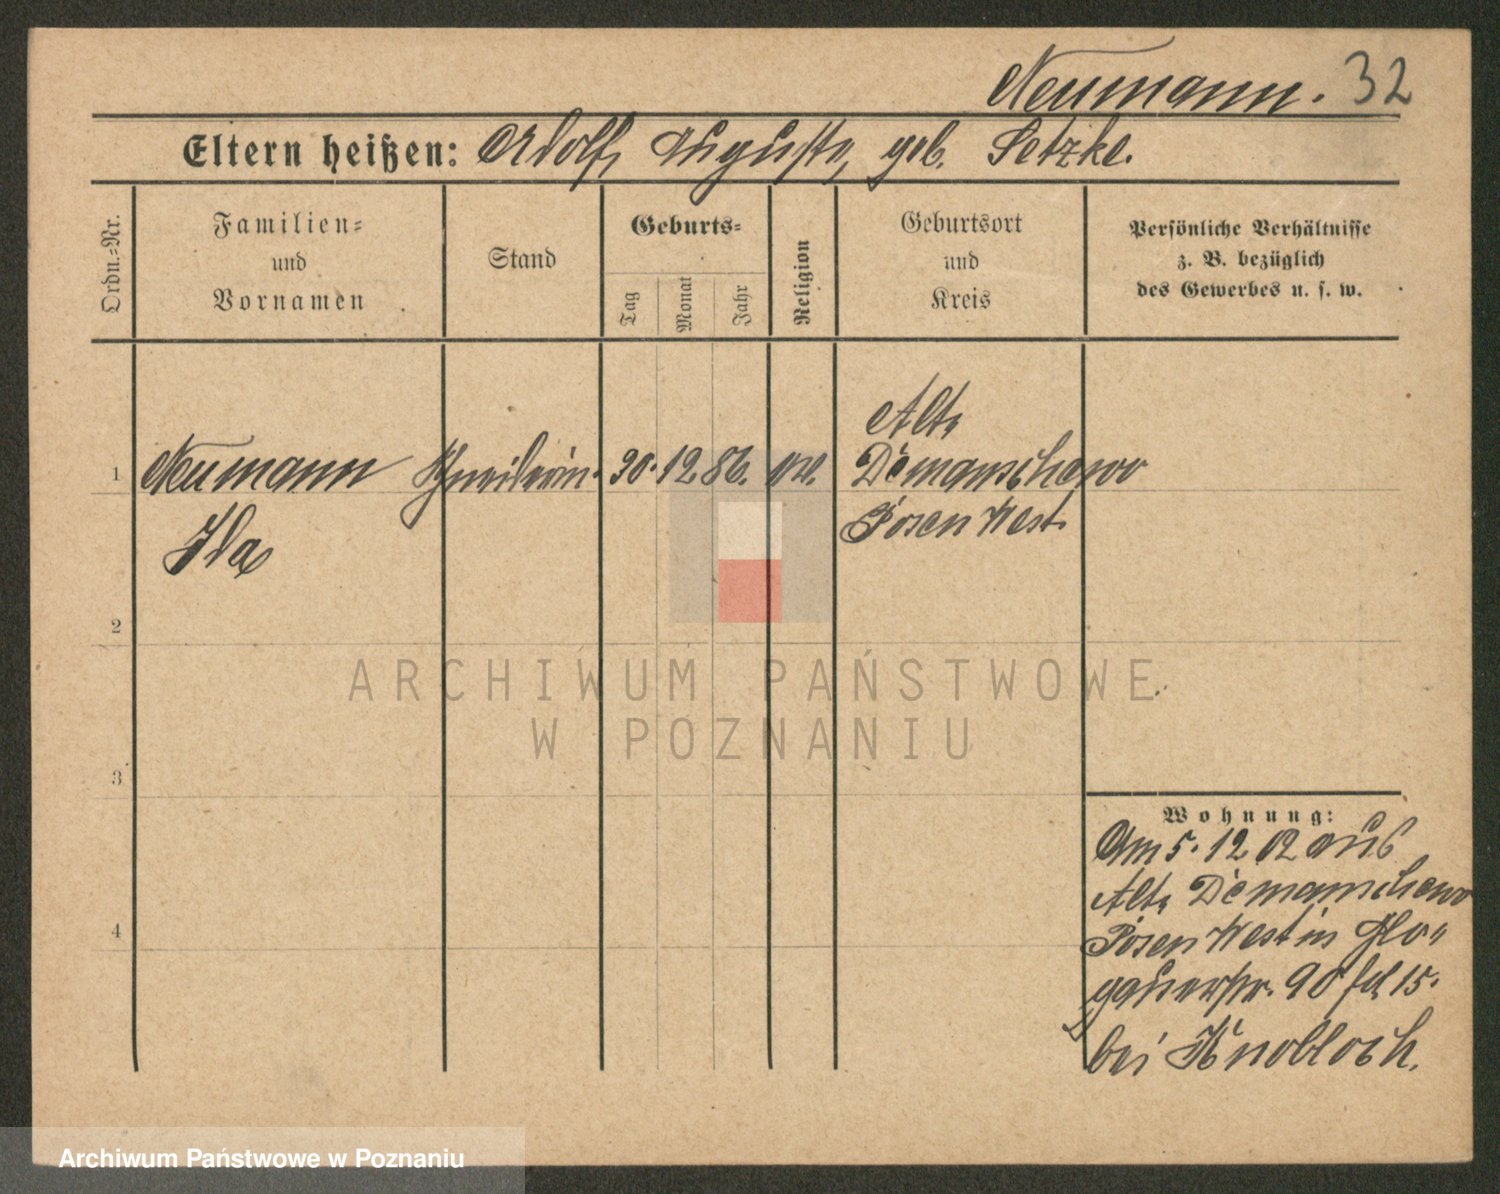 Neumann. 32
Eltern heißen: Adolf, Auguste, geb. Setzke.
Ordn.=Nr.
Familien=
und
Vornamen
Stand
Geburts=
Tag
Monat
Jahr
Religion
Geburtsort
und
Kreis
Persönliche Verhältnisse
z. B. bezüglich
des Gewerbes u. s. w.
Alt-
1 Neumann Schneiderin. 30. 12. 86. Demanschewo
Posen West.
Ida
2
3
4
ARCHIWUM PAŃSTWOWE
W POZNANIU
Wohnung:
Am 5. 12 02 aus
Alt- Demanschewo
Posen West in Glo-
gauerstr. 90
bei Knobloch.
Archiwum Państwowe w Poznaniu